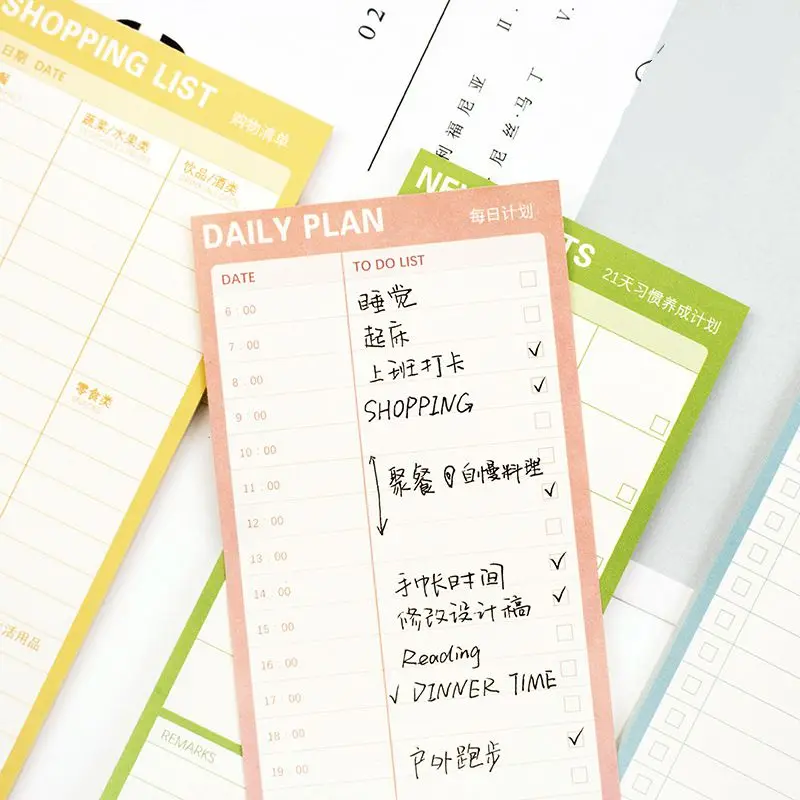 SHOPPING LIST
购物清单
日期 DATE
餐
蔬菜/水果类
饮品/酒类
零食类
活用品
02
II.
V.
利福尼亚
尼丝·马丁
DAILY PLAN
每日计划
DATE
TO DO LIST
6:00
睡觉
7:00
起床
8:00
上班打卡
9:00
SHOPPING
10:00
11:00
聚餐@自慢料理
12:00
13:00
14:00
手帐时间
15:00
修改设计稿
16:00
Reading
17:00
DINNER TIME
18:00
19:00
户外跑步
TS
21天习惯养成计划
REMARKS